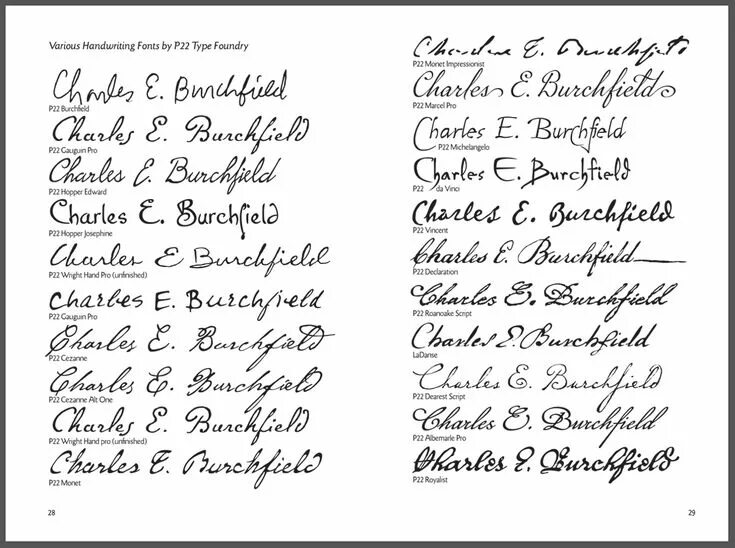 Various Handwriting Fonts by P22 Type Foundry
Charles E. Burchfield
P22 Burchfield
Charles E. Burchfield
P22 Gauguin Pro
Charles E. Burchfield
P22 Hopper Edward
Charles E. Burchfield
P22 Hopper Josephine
Charles E Burchfield
P22 Wright Hand Pro (unfinished)
Charles E. Burchfield
P22 Gauguin Pro
Charles E. Burchfield
P22 Cezanne
Charles E. Burchfield
P22 Cezanne Alt One
Charles E. Burchfield
P22 Wright Hand pro (unfinished)
Charles E. Burchfield
P22 Monet
28
Charles E. Burchfield
P22 Monet Impressionist
Charles E. Burchfield
P22 Marcel Pro
Charles E. Burchfield
P22 Michelangelo
Charles E. Burchfield
P22 da Vinci
Charles E. Burchfield
P22 Vincent
Charles E. Burchfield
P22 Declaration
Charles E. Burchfield
P22 Roanoake Script
Charles E. Burchfield
LaDanse
Charles E. Burchfield
P22 Dearest Script
Charles E. Burchfield
P22 Albemarle Pro
Charles E. Burchfield
P22 Royalist
29